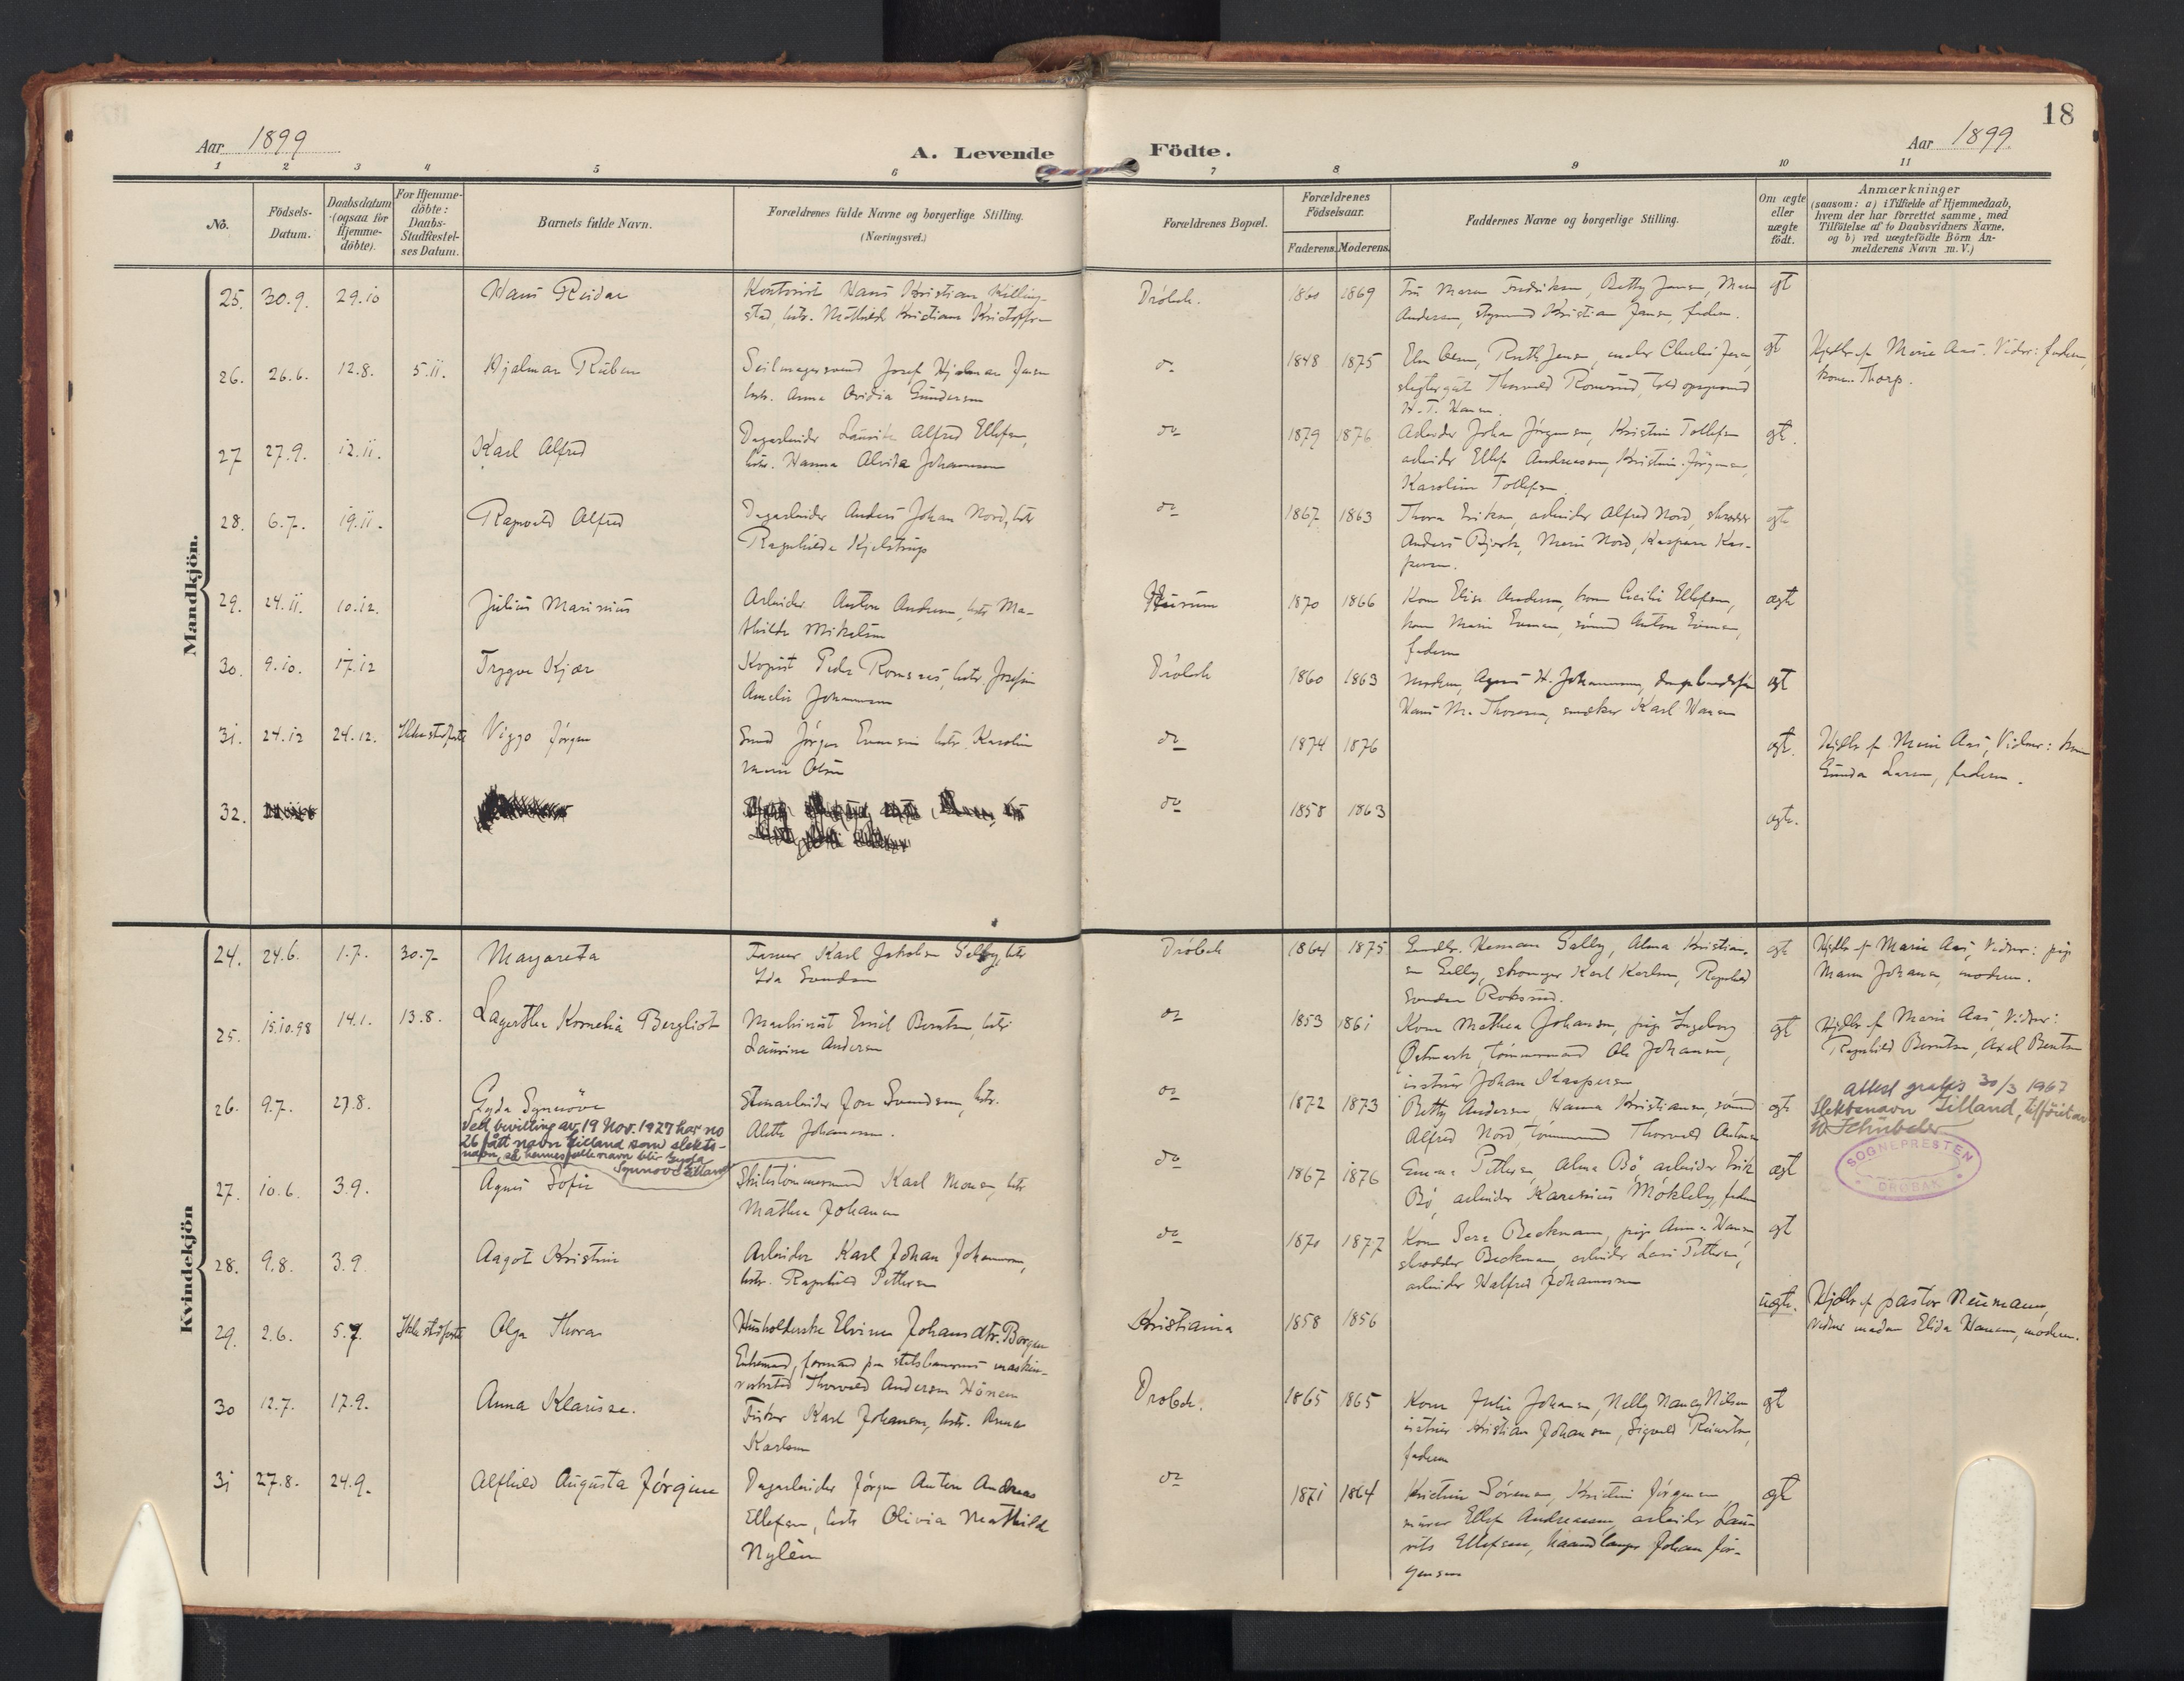 18
Aar 1899
A. Levende
Födte.
Aar 1899.
1 2 3 4 5 6 7 8 9 10 11
No.
Födsels-
Datum.
Daabsdatum
(ogsaa for
Hjemme-
döbte).
For Hjemme-
döbte:
Daabs-
Stadfæstel-
ses Datum.
Barnets fulde Navn.
Forældrenes fulde Navne og borgerlige Stilling.
(Næringsvei.)
Forældrenes Bopæl.
Forældrenes
Födselsaar.
Faderens. Moderens.
Faddernes Navne og borgerlige Stilling.
Om ægte
eller
uægte
födt.
Anmærkninger
(saasom: a) i Tilfælde af Hjemmedaab,
hvem der har forrettet samme, med
Tilföielse af to Daabsvidners Navne,
og b) ved uægtefödte Börn An-
melderens Navn m. V.)
Mandkjön.
25. 30.9. 29.10 Hans Reidar
Kontorist Hans Kristian Killing-
stad, hstr. Mathilde Kristiane Kristoffersen
Dröbak. 1860 1869
Fru Maren Fredriksen, Betty Jansen, Maren
Andersen, styrmand Kristian Jansen, faderen.
gt
26. 26.6. 12.8. 5.11. Hjalmar Ruben
Seilmagersvend Josef Hjalmar Jensen
hstr. Anna Ovidia Gundersen
do 1848 1875
Ruth Jensen, maler Charles Jensen
slagtergut Thorvald Romsund, toldopsynsmand
H. T. Hansen.
gt
Hjdbt. af Marie Aas. Vidner: faderen,
kone Thorp.
27 27.9. 12.11. Karl Alfred
Dagarbeider Lauritz Alfred Ellefsen,
hstr. Hanna Alvida Johannessen
do 1879 1876
Arbeider Johan Jörgensen, Kristine Tollefsen
arbeider Ellef Andreassen, Kristine Jörgensen,
Karoline Tollefsen.
gt.
28. 6.7. 19.11. Ragnvald Alfred
Dagarbeider Anders Johan Nord, hstr
Ragnhilda Kjelstrup
do 1867 1863
Thora Eriksen, arbeider Alfred Nord, skrædder
Anders Bjork, Marie Nord, Kaspara Kas-
persen.
gt
29. 24.11. 10.12. Julius Marinius
Arbeider Anton Andersen, hstr Ma-
thilde Mikelsen
Hurum 1870 1866
Kone Elise Andersen, kone Cecilie Ellefsen,
kone Marie Evensen, sömand Anton Evensen,
faderen
ægte
30. 9.10. 17.12 Trygve Kjær
Kopist Peder Romsæs, hstr. Josefine
Amalie Johannessen
Dröbak 1860 1863
Moderen, Agnes H. Johannessen,
Hans M. Thoresen, snedker Karl Hansen
ægt
31. 24.12 24.12. Ikke stadfæstet Viggo Jörgen
Smed Jörgen Evensen hstr. Karoline
Marie Olsen
do 1874 1876
ægt.
Hjdbt. af Marie Aas, Vidner: kone
Gunda Larsen, faderen.
32.
do 1858 1863
ægte.
Kvindekjön
24. 24.6. 1.7. 30.7 Margareta
Farver Karl Jakobsen Salby, hstr
Ida Svendsen
Dröbak 1864 1875
Gaardbr. Herman Salby, Alma Kristian-
sen Salby, skomager Karl Karlsen, Ragnhild
Svendsen Roksund.
gt
Hjdbt. af Marie Aas, Vidner: pige
Maren Johansen, moderen.
25. 15.10.98 14.1. 13.8. Lagertha Kornelia Bergliot
Maskinist Emil Berntsen, hstr
Laurine Andersen
do 1853 1861
Kone Mathea Johansen, pige Ingeborg
Östmark, tömmermand Ole Johansen,
Johan Kaspersen
gt
Hjdbt. af Marie Aas, Vidner:
Ragnhild Berntsen, Axel Berntsen
26. 9.7. 27.8. Gyda Synnöve
Ved bevilling av 19 Nov. 1927 har no
26 fått navn Gilland som slekts-
navn, så hennes fulle navn blir Gyda
Synnöve Gilland
Stenarbeider Jon Svendsen, hstr.
Alette Johannessen.
do 1872 1873
Betty Andersen, Hanna Kristiansen, sömand
Alfred Nord, tömmermand Thorvald Antonsen
gt
attest gratis 30/3 1967
Slektsnavn Gilland, tilföiet av
W. Schübeler
SOGNEPRESTEN
DRØBAK
27. 10.6. 3.9. Agnes Sofie
Skibstömmermand Karl Monsen, hstr
Mathea Johansen
do 1867 1876
Emma Pettersen, Alma Bö, arbeider Erik
Bö, arbeider Karenius Mökleby, faderen
ægt
28. 9.8. 3.9. Aagot Kristine
Arbeider Karl Johan Johannessen,
hstr. Ragnhild Pettersen
do 1870 1877
Kone Sara Beckmann, pige Anna Hansen
skrædder Beckman, arbeider Lars Pettersen,
arbeider Halfred Johannessen
gt
29. 2.6. 5.7. Ikke stadfæstet Olga Thora
Husholderske Elvine Johansdtr. Borgen
Enkemand, formand paa statsbanernes maskin-
verksted Thorvald Andersen Hönen
Kristiania 1858 1856
uægte.
Hjdbt. af pastor Neumann,
Vidner madam Elida Hansen, moderen.
30 12.7. 17.9. Anna Klarisse.
Fisker Karl Johansen, hstr. Anna
Karlsen
Dröbak. 1865 1865
Kone Julie Johansen, Nelly Nancy Nilsen
Kristian Johansen, Sigvald Reinertsen,
faderen
gt
31 27.8. 24.9. Alfhild Augusta Jörgine
Dagarbeider Jörgen Anton Andreas
Ellefsen, hstr Olivia Mathilde
Nylén
do 1871 1864
Kristine Sörensen, Kristine Jörgensen
murer Ellef Andreassen, arbeider Lau-
rits Ellefsen, haandlanger Johan Jör-
gensen
ægt